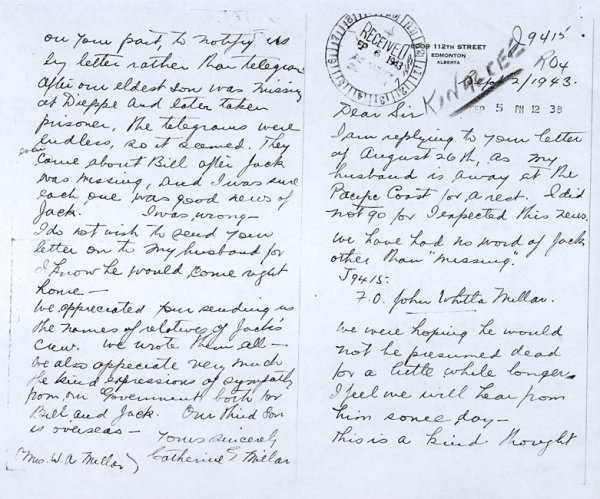 J9415
R04
RECEIVED
1943
112TH STREET
EDMONTON
ALBERTA
Sept 2/1943.
SEP 5 PM 12 38
Dear Sir
I am replying to your letter
of August 26th, as my
husband is away at the
Pacific Coast for a rest. I did
not go for I expected this news.
We have had no word of Jack
other than "missing".
J9415.
F.O. John Whitla Millar.
We were hoping he would
not be presumed dead
for a little while longer.
I feel we will hear from
him some day—
This is a kind thought
on your part, to notify us
by letter rather than telegram.
After our eldest son was missing
at Dieppe and later taken
prisoner, the telegrams were
endless, so it seemed. They
came about Bill after Jack
was missing, and I was sure
each one was good news of
Jack. I was wrong—
I do not wish to send your
letter on to my husband for
I know he would come right
home—
We appreciated your sending us
the names of relatives of Jack's
crew. We wrote them all—
We also appreciate very much
the kind expressions of sympathy
from our Government both for
Bill and Jack. Our third son
is overseas—
Yours sincerely
(Mrs. W. A. Millar) Catherine G Millar